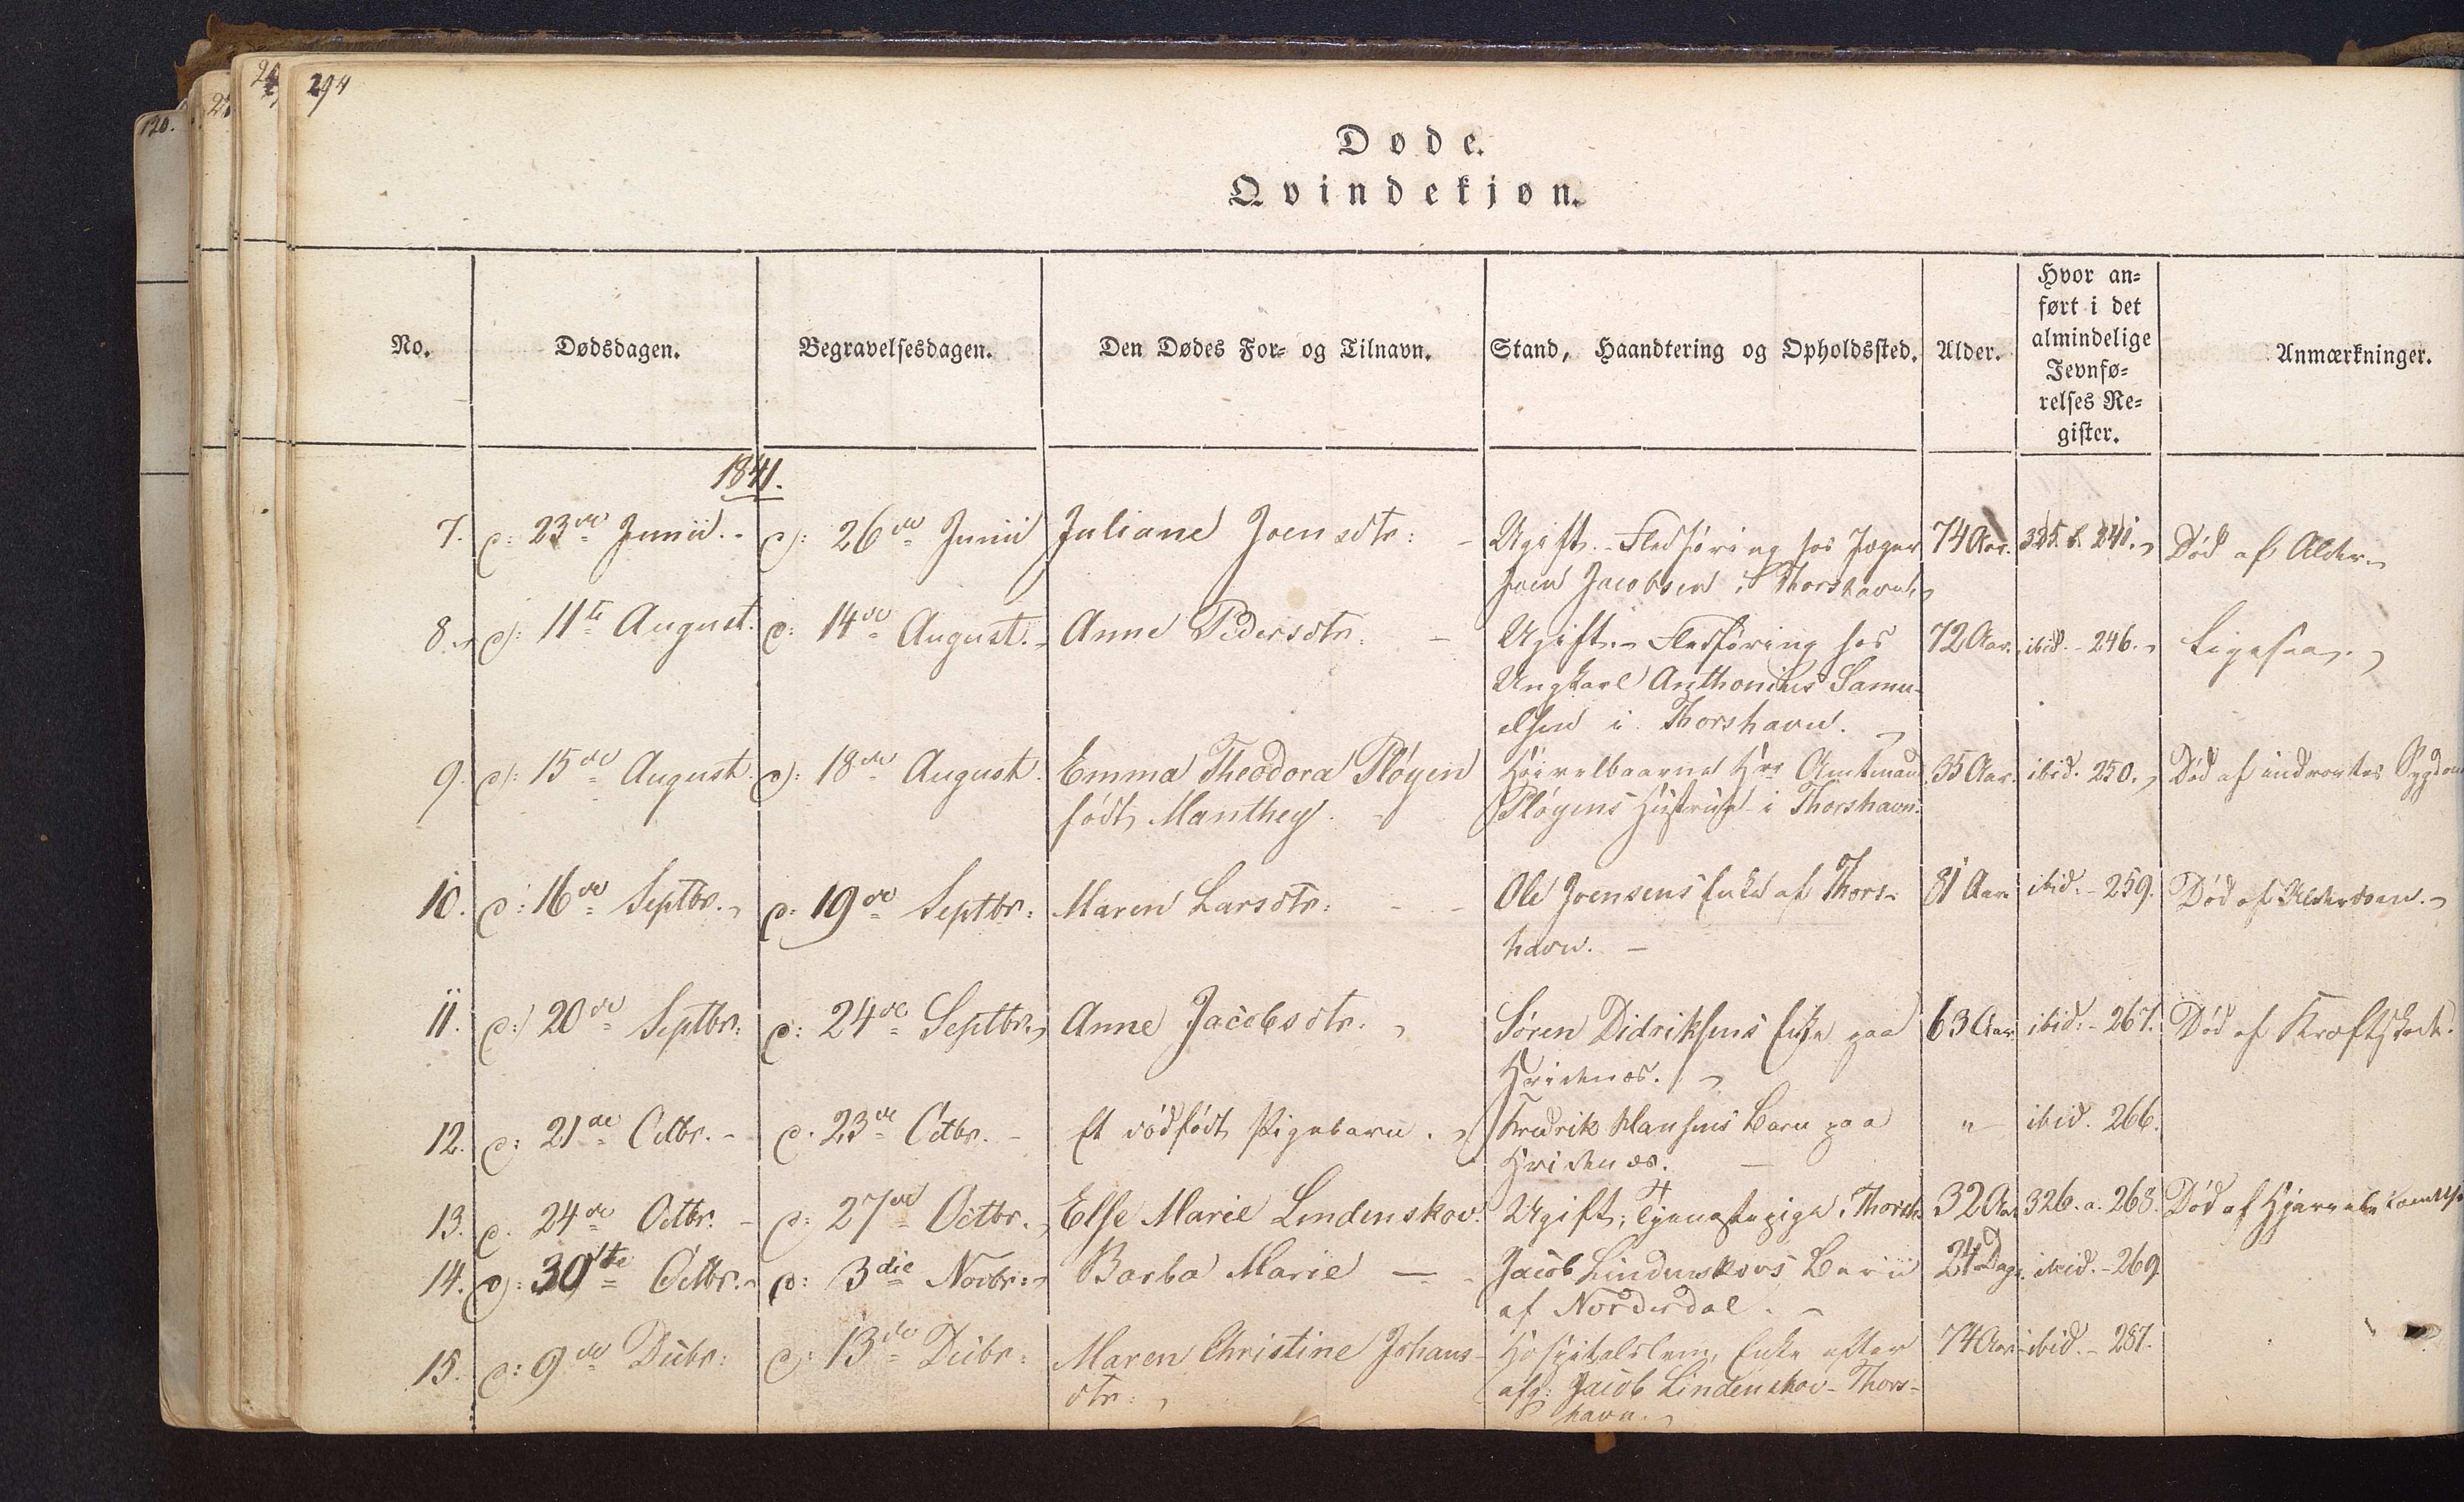 294
Døde.
Qvindekjøn.
No.
Dødsdagen.
Begravelsesdagen.
Den Dødes For- og Tilnavn.
Stand, Haandtering og Opholdssted.
Alder.
Hvor an-
ført i det
almindelige
Jevnfø-
relses Re-
gister.
Anmærkninger.
1841.
7. d: 23de Junii. - d: 26de Junii Juliane Joensdtr: - Ugift. - Fledføring hos Jæger 74 Aar. 325. b. 241. Død af Alder.
Joen Jacobsen i Thorshavn.
8. d: 11te August. d: 14de August. Anne Pedersdtr. - Ugift. - Fledføring hos 72 Aar. ibid. - 246. Ligesaa.
Ungkarl Anthonius Samu-
elsen i Thorshavn.
9. d: 15de August. d: 18de August. Emma Theodora Pløyen Høivelbaarne Hrr Amtmand 35 Aar. ibid. 250. Død af indvortes Sygdom
født Manthey. - Pløyens Hustrue i Thorshavn.
10. d: 16de Septbr. d: 19de Septbr: Maren Larsdtr: - - Ole Joensens Enke af Thors- 81 Aar ibid. - 259. Død af Alderdom.
havn. -
11. d: 20de Septbr: d: 24de Septbr. Anne Jacobsdtr. Søren Didriksens Enke paa 63 Aar ibid: - 267. Død af Kræftskade.
Hvidenæs.
12. d: 21de Octbr. - d. 23de Octbr. - Et dødfødt Pigebarn. Fredrik Hansens Barn paa " ibid. 266.
Hvidenæs. -
13. d. 24de Octbr. - d: 27de Octbr. Else Marie Lindenskov. Ugift, Tjenestepige i Thorsh. 32 Aar 326. a. 268. Død af
14. d: 30te Octbr. d: 3die Novbr: Barba Marie - Jacob Lindenskovs Barn 24 Dage. ibid. - 269.
af Norderdal. -
15. d: 9de Decbr: d: 13de Decbr: Maren Christine Johans- Hospitalslem, Enke efter 74 Aar ibid. - 287.
dtr: afg: Jacob Lindenskov - Thors-
havn.
120.